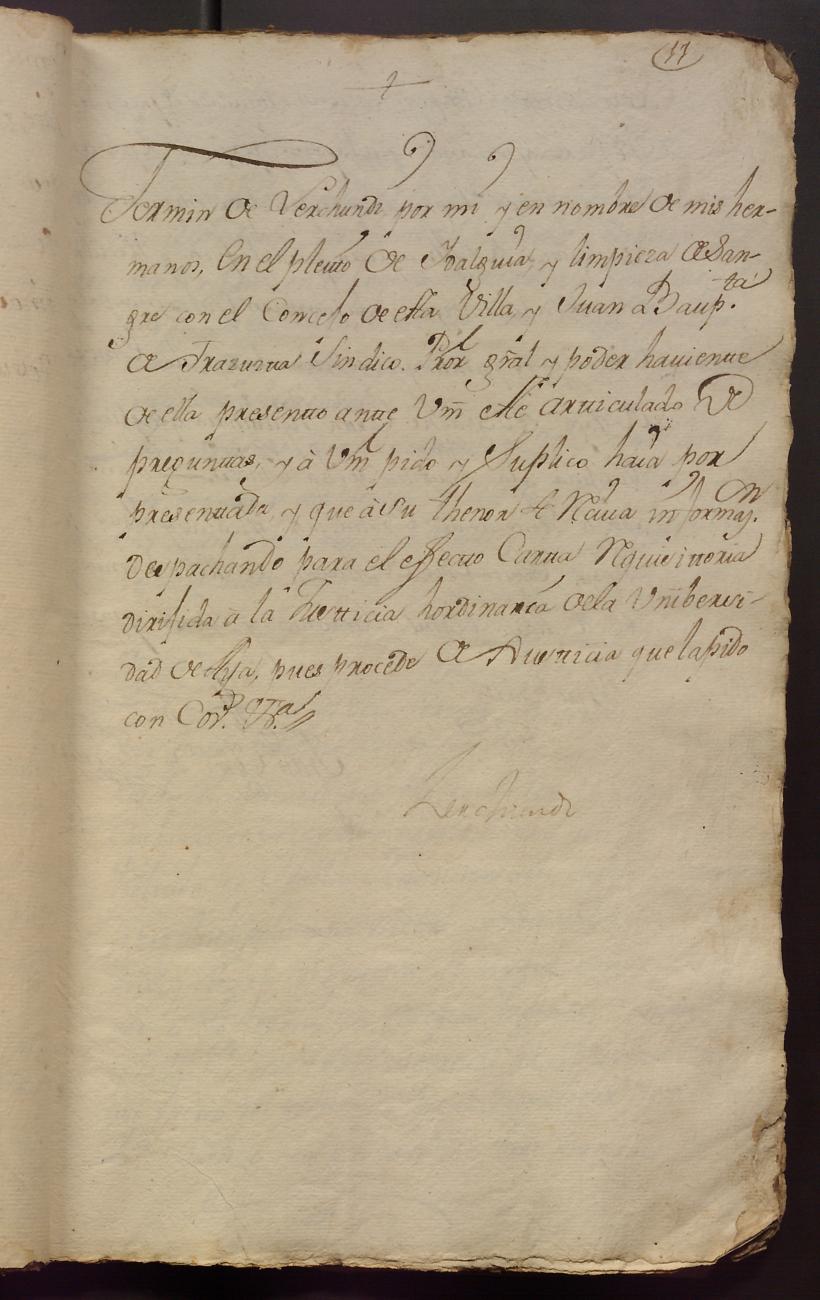 11
Fermin de Lerchundi por mi y en nombre de mis her-
manos, En el pleito de Idalguia, y limpieza de San-
gre con el Concejo de esta Villa, y Juan Baup.ta
de Irazuzta Sindico. Pror gñal y poder haviente
de ella presento ante Vm̃ este articulado de
preguntas, y à Vm̃ pido y Suplico haia por
presentada, y que à su thenor se Reciva informaz.on
despachando para el effecto Carta Rquisitoria
dirijida a la Justicia hordinaria dela Vniberci-
dad de , pues procede de Justicia que la pido
con Cos.
Lerchundi